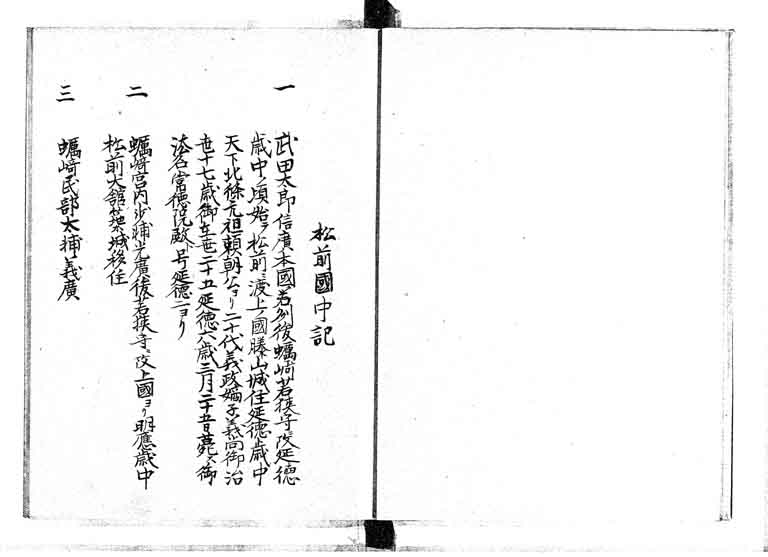 松前國中記
一
武田太郎信廣本國若刕後蠣崎若狹守ニ改延徳
歳中ノ頃始テ松前ニ渡上ノ國勝山城住延徳歳中
天下北條元祖頼朝公ヨリ二十代義政嫡子義尚御治
世十七歳御在世二十五延徳六歳三月二十五日薨ス御
法名常徳院殿ト号延徳二ヨリ
二
蠣崎宮内少輔光廣後若狹守ニ改上國ヨリ明應歳中
松前大舘築城移住
三
蠣崎民部太輔義廣